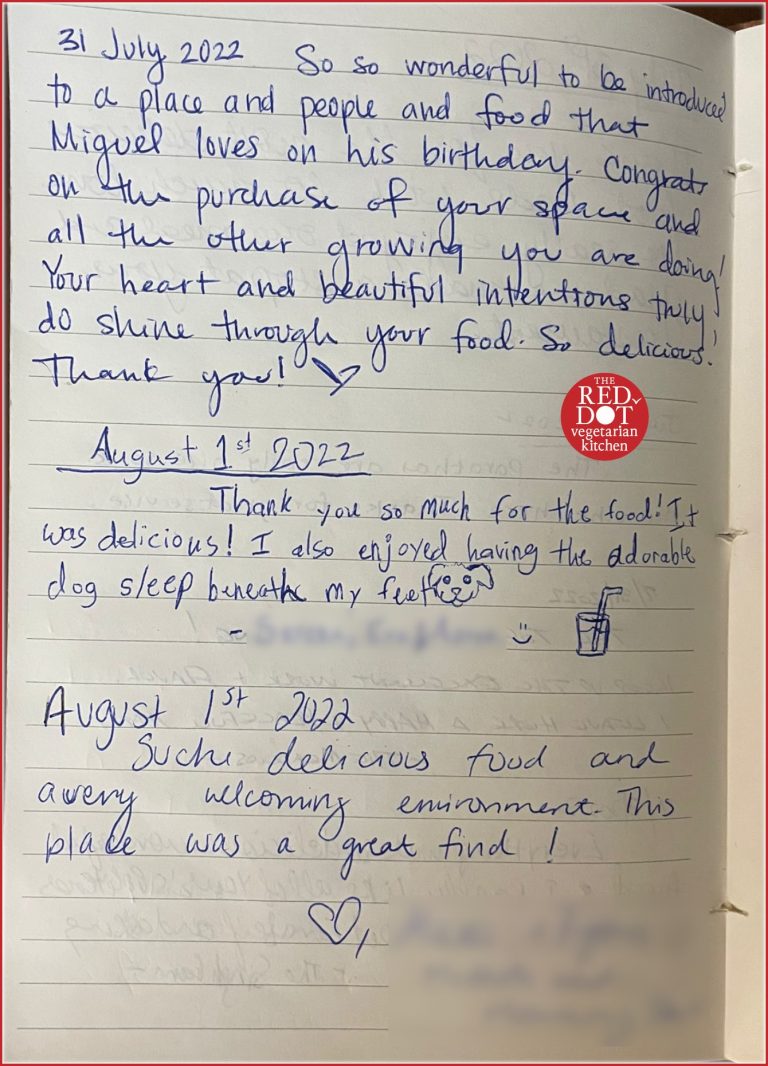 31 July 2022 So so wonderful to be introduced
to a place and people and food that
Miguel loves on his birthday. Congrats
on the purchase of your space and
all the other growing you are doing!
Your heart and beautiful intentions truly
do shine through your food. So delicious!
Thank you!
THE
RED
DOT
vegetarian
kitchen
August 1st 2022
Thank you so much for the food! It
was delicious! I also enjoyed having the adorable
dog sleep beneath my feet
August 1st 2022
Such delicious food and
a very welcoming environment. This
place was a great find!